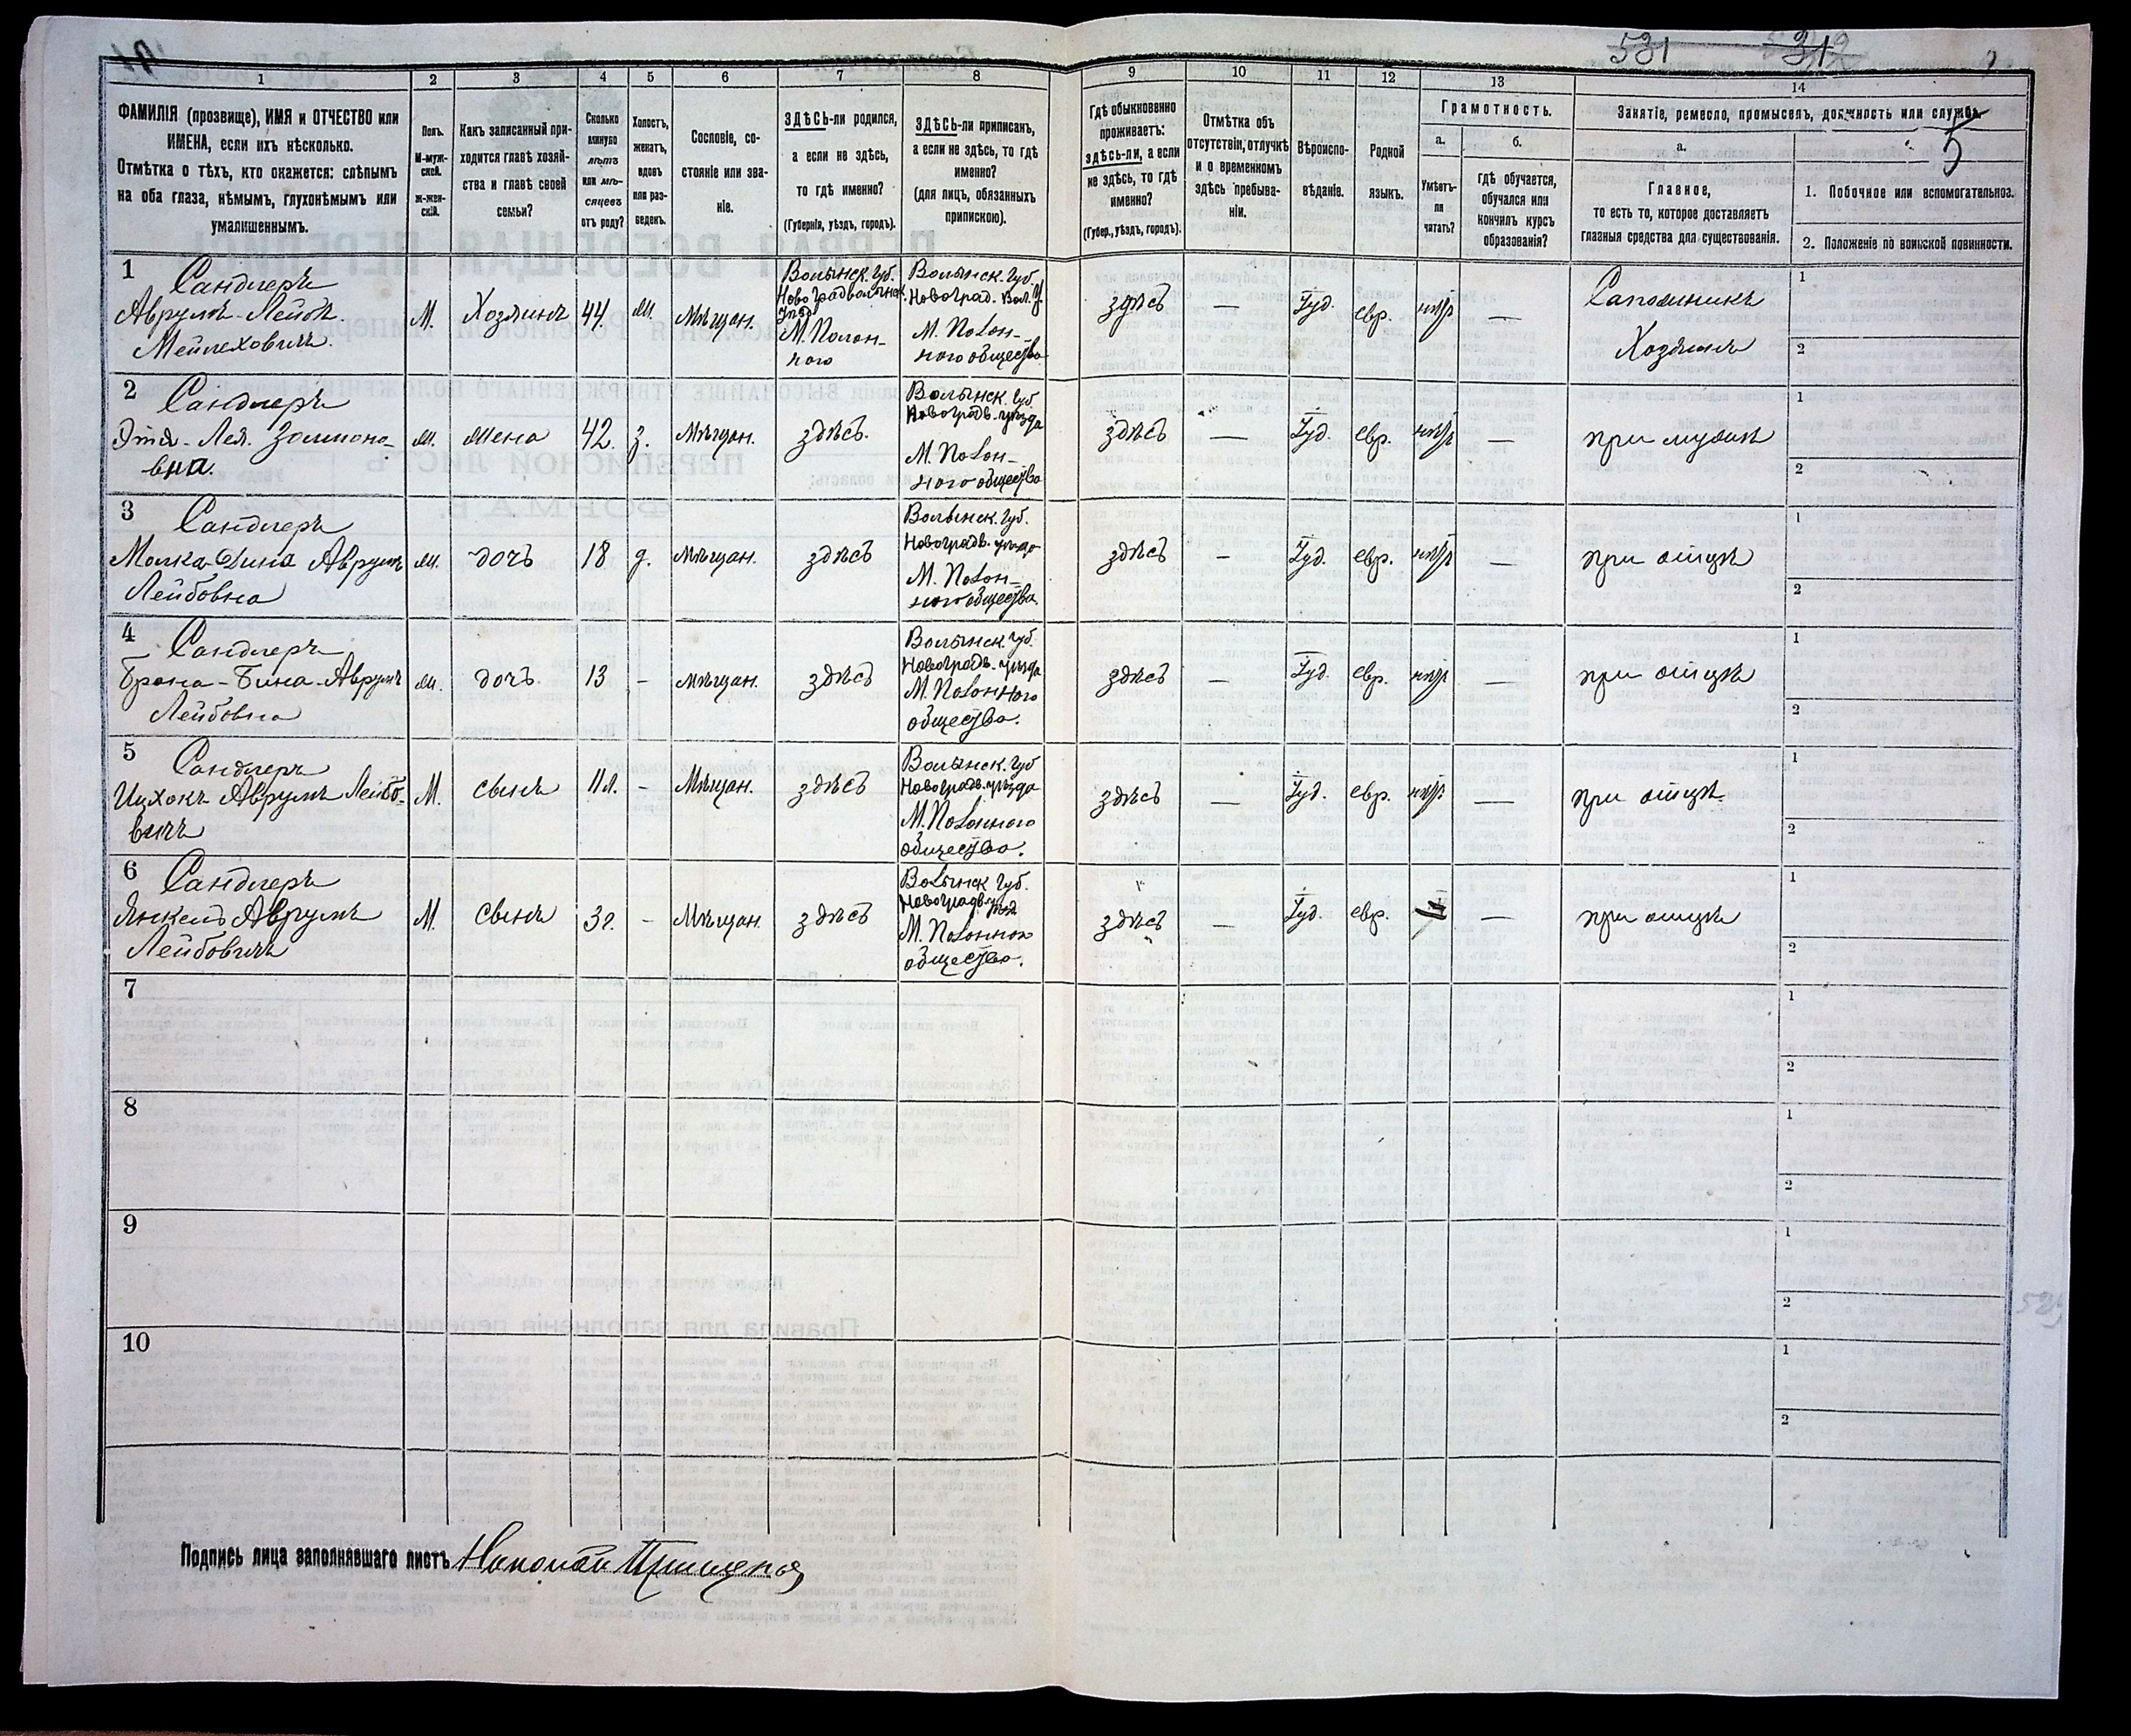 531 319
1 2 3 4 5 6 7 8 9 10 11 12 13 14
ФАМИЛІЯ (прозвище), ИМЯ и ОТЧЕСТВО или
ИМЕНА, если ихъ нѣсколько.
Отмѣтка о тѣхъ, кто окажется: слѣпымъ
на оба глаза, нѣмымъ, глухонѣмымъ или
умалишеннымъ.
Полъ.
М-муж-
ской.
ж-жен-
скій.
Какъ записанный при-
ходится главѣ хозяй-
ства и главѣ своей
семьи?
Сколько
минуло
лѣтъ
или мѣ-
сяцевъ
отъ роду?
Холостъ,
женатъ,
вдовъ
или раз-
веденъ.
Сословіе, со-
стояніе или зва-
ніе.
ЗДѢСЬ-ли родился,
а если не здѣсь,
то гдѣ именно?
(Губернія, уѣздъ, городъ).
ЗДѢСЬ-ли приписанъ,
а если не здѣсь, то гдѣ
именно?
(для лицъ, обязанныхъ
припискою).
Гдѣ обыкновенно
проживаетъ:
здѣсь-ли, а если
не здѣсь, то гдѣ
именно?
(Губер., уѣздъ, городъ).
Отмѣтка объ
отсутствіи, отлучкѣ
и о временномъ
здѣсь пребыва-
ніи.
Вѣроиспо-
вѣданіе.
Родной
языкъ.
Грамотность.
а.
Умѣетъ-
ли
читать?
б.
гдѣ обучается,
обучался или
кончилъ курсъ
образованія?
Занятіе, ремесло, промыселъ, должность или служба.
5
а.
Главное,
то есть то, которое доставляетъ
главныя средства для существованія.
1. Побочное или вспомогательное.
2. Положеніе по воинской повинности.
1
Сандлеръ
Аврумъ-Лейбъ
Мейлеховичъ.
М. Хозяинъ 44. ж. Мѣщан.
Волынск. Губ.
М. Полон-
ного
Волынск. Губ.
Новоград. Вол. У.
М. Полон-
ного общества
здѣсь — Іуд. евр. —
Сапожникъ
Хозяинъ
1
2
2
Сандлеръ
Этя-Лея. Залмоно-
вна.
ж. жена 42. з. Мѣщан. здѣсь.
Волынск. Губ.
Новоградв. уѣзда
М. Полон-
ного общества
здѣсь — Іуд. евр. — при мужѣ
1
2
3
Сандлеръ
Малка-Дина Аврумъ
Лейбовна
ж. дочь 18 д. мѣщан. здѣсь
Волынск. Губ.
Новоградв. уѣзда
М. Полон-
ного общества.
здѣсь — Іуд. евр. — при отцѣ
1
2
4
Сандлеръ
Брана-Бина-Аврумъ
Лейбовна
ж. дочь 13 — мѣщан. здѣсь
Волынск. Губ.
Новоградв. уѣзда
М. Полонного
общества.
здѣсь — Іуд. евр. — при отцѣ
1
2
5
Сандлеръ
Ицхокъ Аврумъ Лейбо-
вичъ
М. сынъ 11 л. — Мѣщан. здѣсь
Волынск. Губ
Новоградв. уѣзда
М. Полонного
общества.
здѣсь — Іуд. евр. — при отцѣ
1
2
6
Сандлеръ
Янкель Аврумъ
Лейбовичъ
М. сынъ 3 г. — Мѣщан здѣсь
Волынск Губ.
М. Полонног
общества.
здѣсь — Іуд. евр. — при отцѣ
1
2
7
1
2
8
1
2
9
1
2
10
1
2
Подпись лица заполнявшего листъ